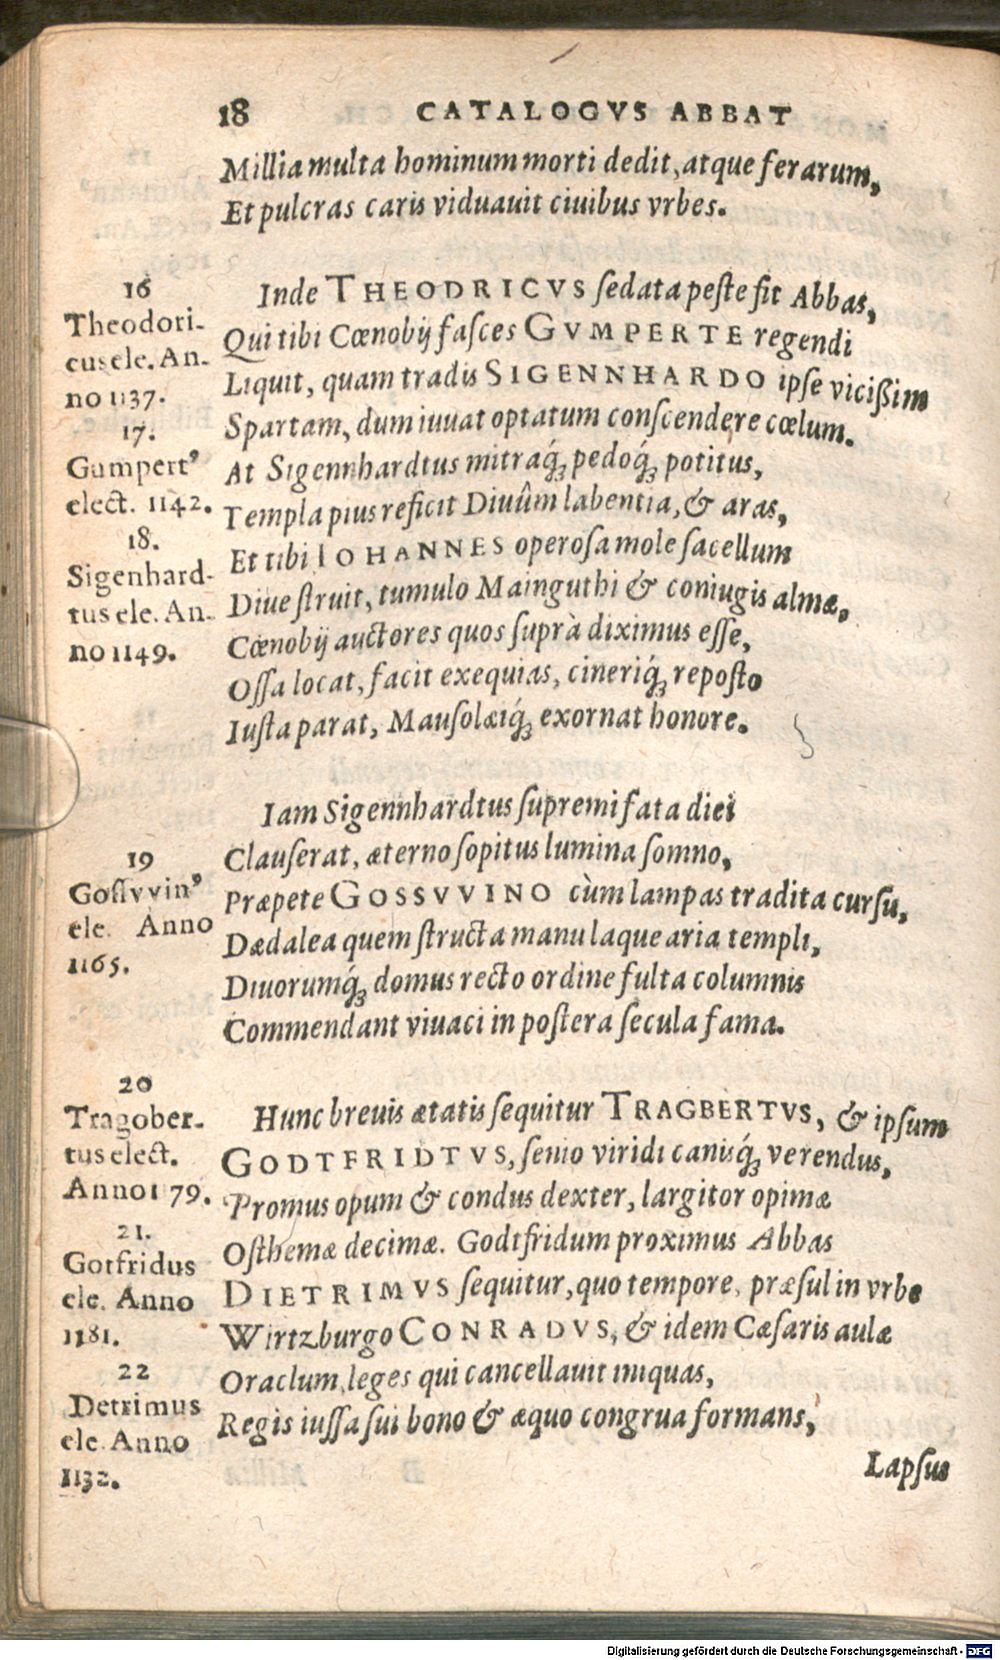 18 CATALOGVS ABBAT
Millia multa hominum morti dedit, atque ferarum,
Et pulcras caris viduauit ciuibus vrbes.
16
Theodori-
cus ele. An-
no 1137.
17.
Gumpertꝰ
elect. 1142.
18.
Sigenhard-
tus ele. An-
no 1149.
Inde THEODRICVS sedata peste fit Abbas,
Qui tibi Cœnobij fasces GVMPERTE regendi
Liquit, quam tradis SIGENNHARDO ipse vicißim
Spartam, dum iuuat optatum conscendere cœlum.
At Sigennhardtus mitraq́; pedoq́; potitus,
Templa pius reficit Diuûm labentia, & aras,
Et tibi IOHANNES operosa mole sacellum
Diue struit, tumulo Mainguthi & coniugis almæ,
Cœnobij auctores quos suprà diximus esse,
Ossa locat, facit exequias, cineriq́; reposto
Iusta parat, Mausolæiq́; exornat honore.
Iam Sigennhardtus supremi fata diei
Clauserat, æterno sopitus lumina somno,
19
Gossvvinꝰ
ele. Anno
1165.
Præpete GOSSVVINO cùm lampas tradita cursu,
Dædalea quem structa manu laquearia templi,
Diuorumq́; domus recto ordine fulta columnis
Commendant viuaci in postera secula fama.
20
Tragober-
tus elect.
Anno 1179.
21.
Gotfridus
ele. Anno
1181.
22
Detrimus
ele. Anno
1132.
Hunc breuis ætatis sequitur TRAGBERTVS, & ipsum
GODTFRIDTVS, senio viridi canisq́; verendus,
Promus opum & condus dexter, largitor opimæ
Osthemæ decimæ. Godtfridum proximus Abbas
DIETRIMVS sequitur, quo tempore, præsul in vrbe
Wirtzburgo CONRADVS, & idem Cæsaris aulæ
Oraclum, leges qui cancellauit iniquas,
Regis iussa sui bono & æquo congrua formans,
Lapsus
Digitalisierung gefördert durch die Deutsche Forschungsgemeinschaft - DFG